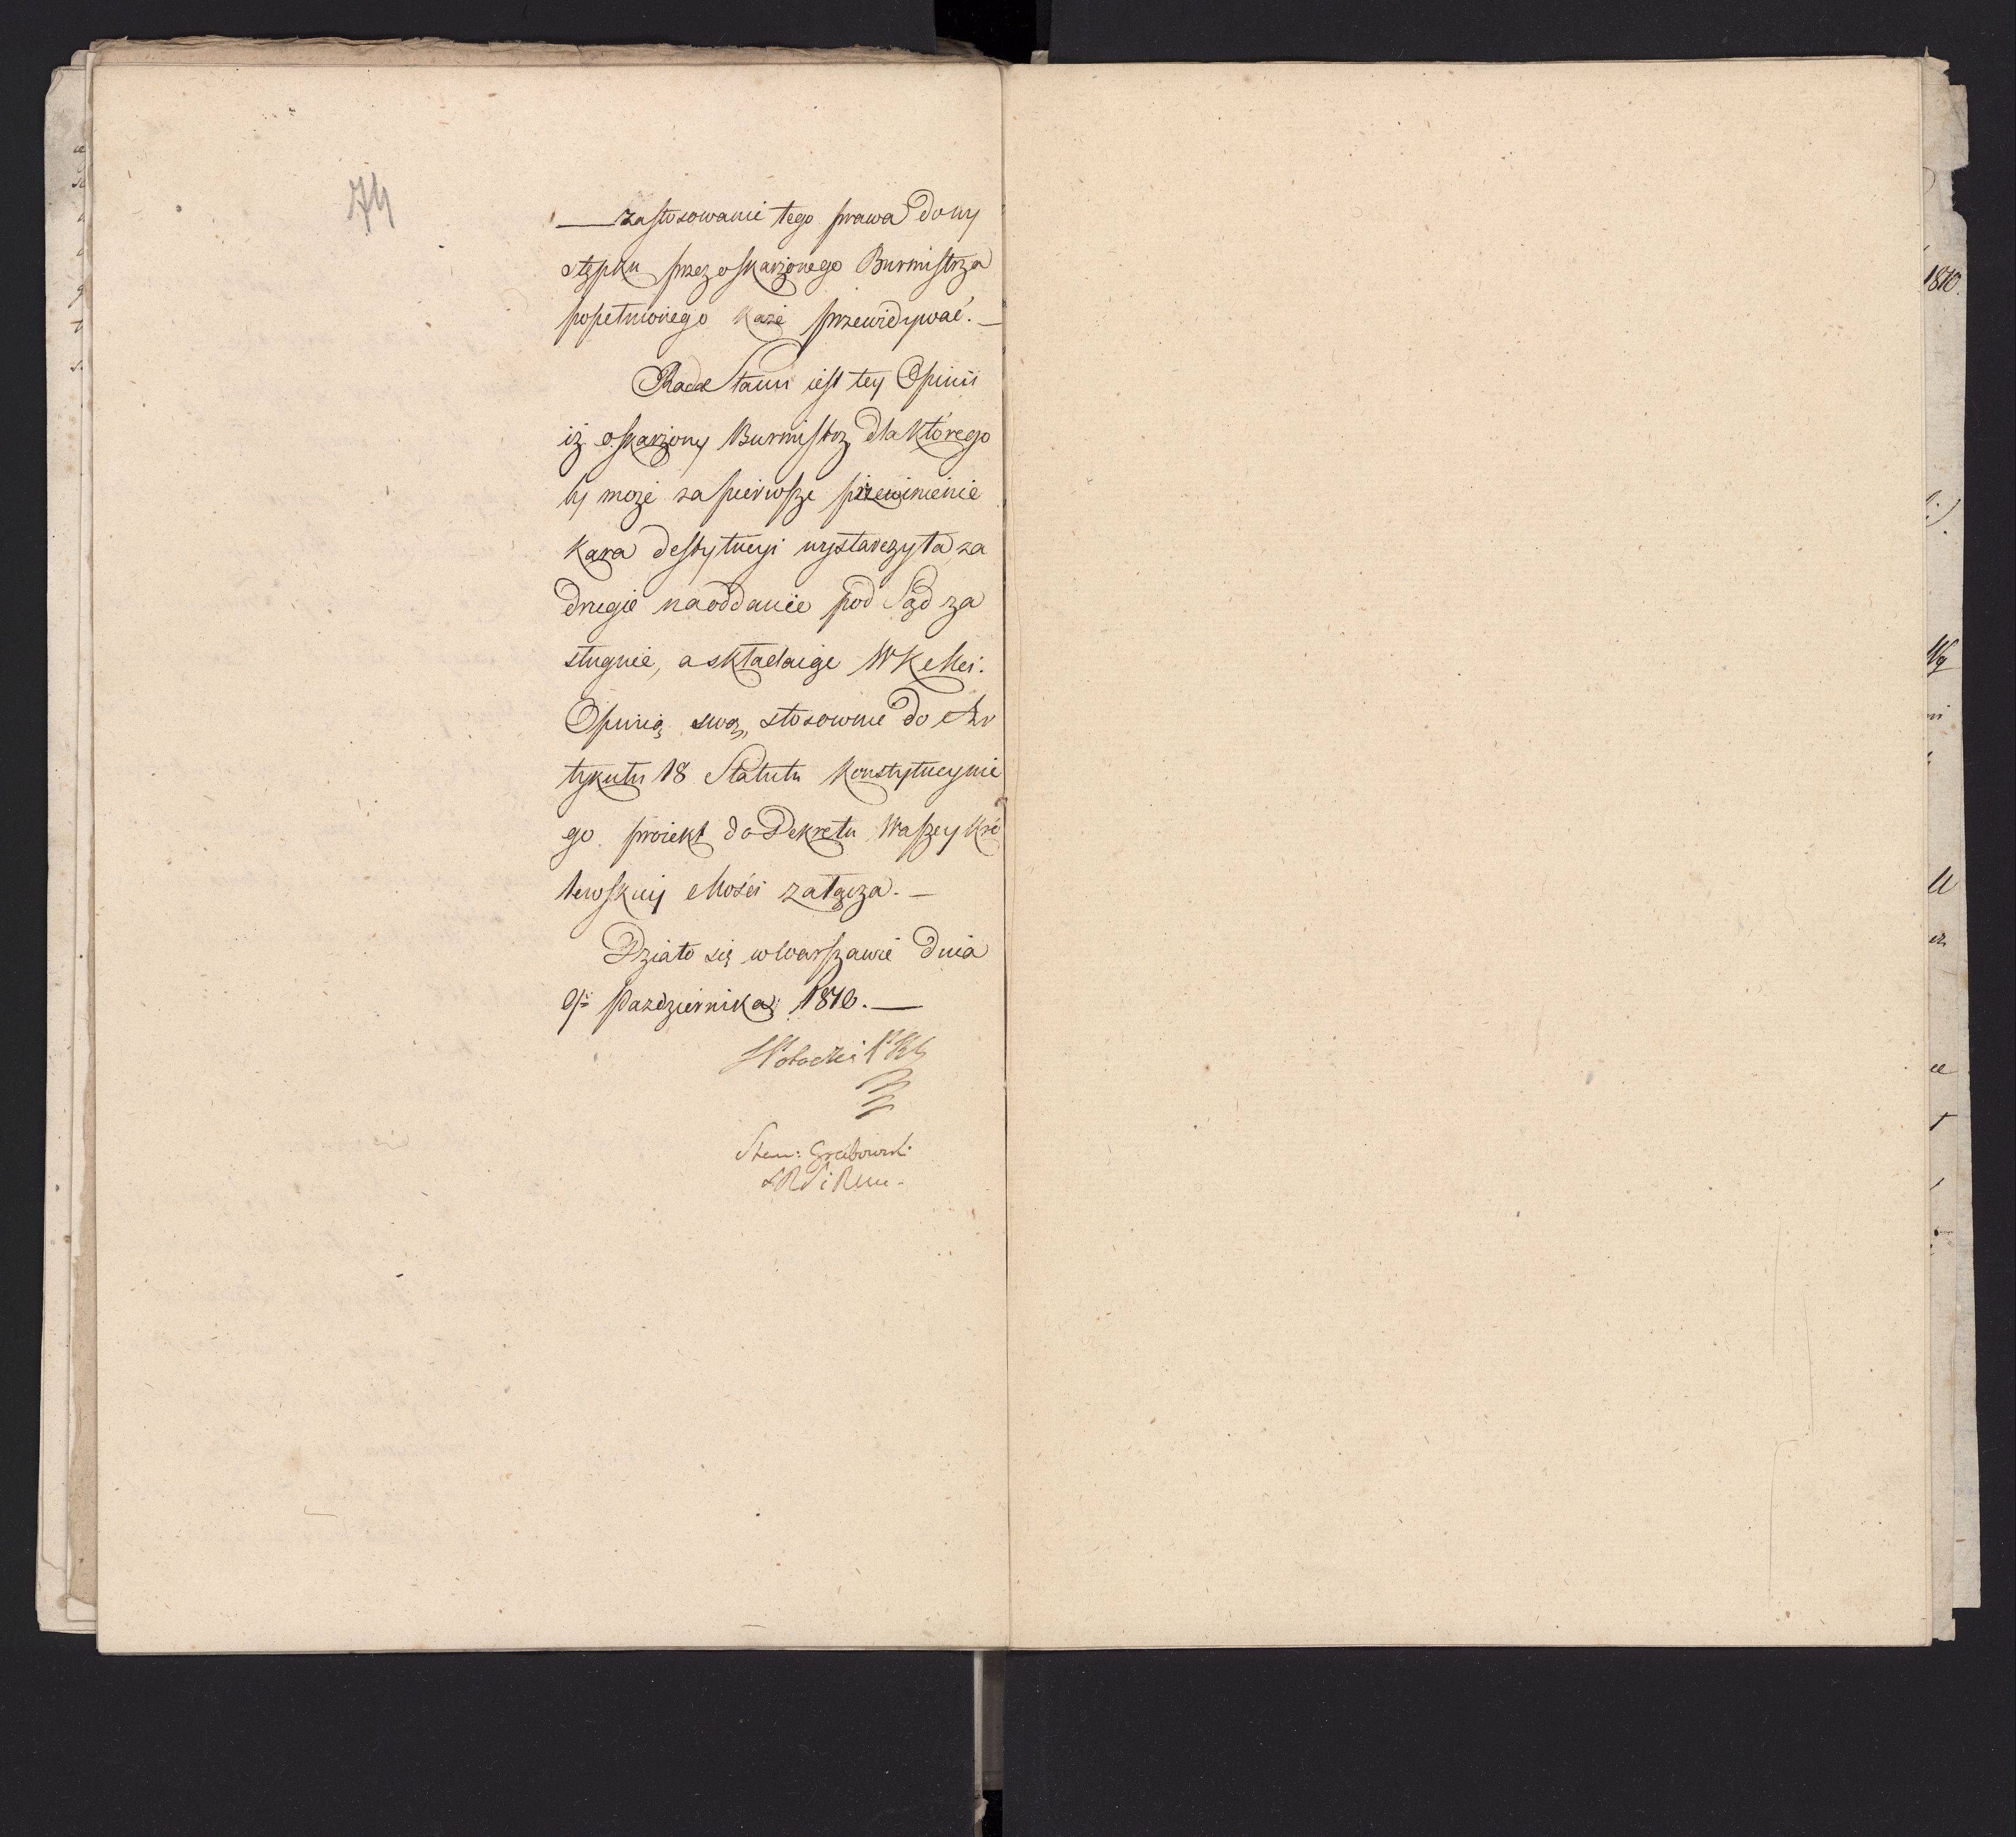 74
— zastosowanie tego prawa do wy
stępku przez oskarżonego Burmistrza
popełnionego każe przewidywać. —
Rada Stanu iest tey Opinii
iż oskarżony Burmistrz dla którego
by może za pierwsze przewinienie
kara destytucyi wystarczyła, za
drugie na oddanie pod Sąd za
sługuie, a składaiąc WKMci.
Opinią swą, stosownie do Ar
tykułu 18 Statutu Konstytucyine
go proiekt do Dekretu Waszey Kró
lewskiej Mości załącza. —
Działo się w Warszawie Dnia
9. Pazdziernika 1810. —
SPotocki
Stan: Grabowski
1810.